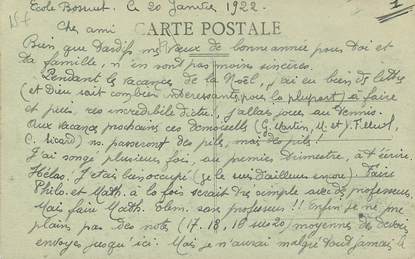 Ecole Bossuet, le 20 Janvier 1922.
Cher ami
CARTE POSTALE
Bien que tardifs, mes vœux de bonne année pour toi et
ta famille, n'en sont pas moins sincères.
Pendant les vacances de la Noël, j'ai eu bien des lettres
(et Dieu sait combien intéressantes pour la plupart) à faire
et puis, res incredibile dictu, j'allais jouer au tennis.
Aux vacances prochaines ces Demoiselles (G. Martin, M. et J.
C. Sicard) ne passeront des pils, mais des pils!
J'ai songé plusieurs fois, au premier trimestre, à t'écrire.
Hélas! J'étais bien occupé (je le suis d'ailleurs encore) Faire
Philo. et Math. à la fois serait très simple avec des professeurs.
Mais faire Math. Elem. sans professeurs!! Enfin je ne me
plains pas des notes (17. 18, 16 sur 20) moyennes des devoirs
envoyés jusqu'ici. Mais je n'aurai malgré tout jamais le